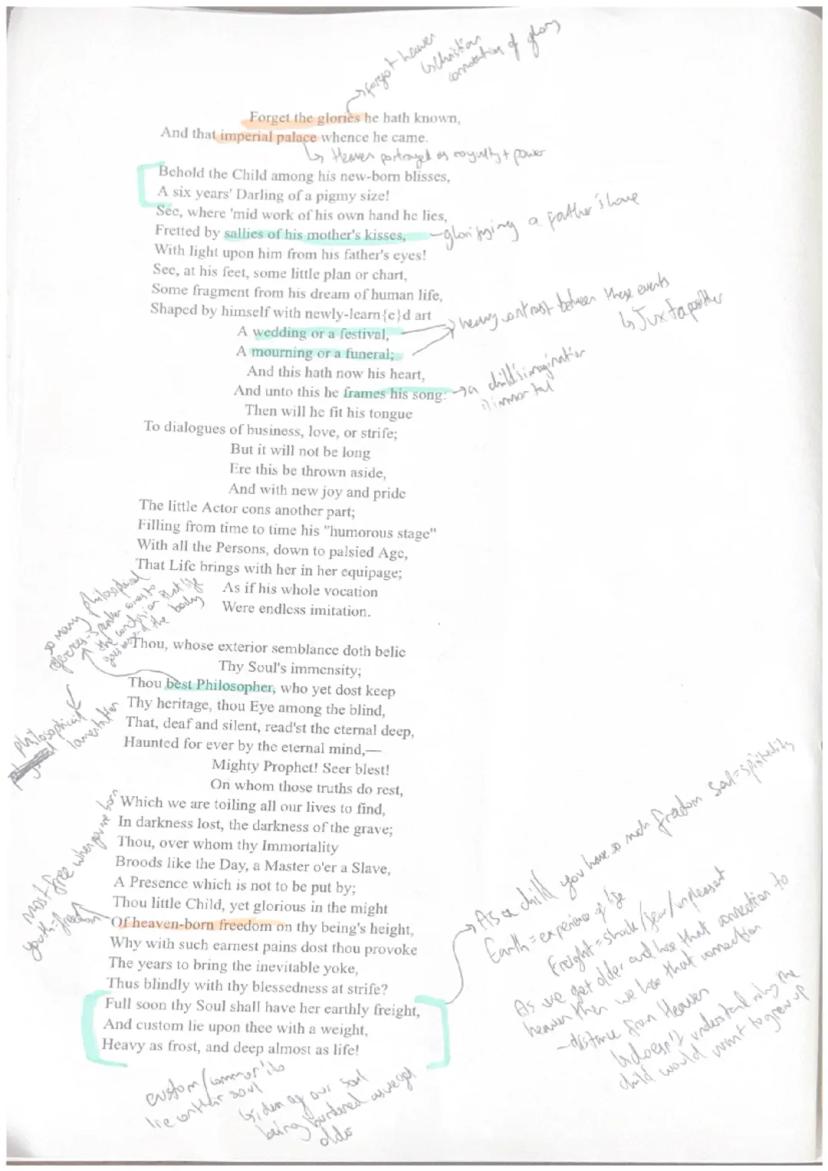 forgot heaven
↳Christian
connotation of glory
Forget the glories he hath known,
And that imperial palace whence he came.
↳ Heaven portrayed as royalty + power
Behold the Child among his new-born blisses,
A six years' Darling of a pigmy size!
See, where 'mid work of his own hand he lies,
Fretted by sallies of his mother's kisses,
- glorifying a father's love
With light upon him from his father's eyes!
See, at his feet, some little plan or chart,
Some fragment from his dream of human life,
Shaped by himself with newly-learn{e}d art
A wedding or a festival,
A mourning or a funeral;
heavy contrast between these events
↳ Juxtaposition
And this hath now his heart,
And unto this he frames his song:
→a child's imagination
is immortal
Then will he fit his tongue
To dialogues of business, love, or strife;
But it will not be long
Ere this be thrown aside,
And with new joy and pride
The little Actor cons another part;
Filling from time to time his "humorous stage"
With all the Persons, down to palsied Age,
That Life brings with her in her equipage;
As if his whole vocation
Were endless imitation.
so many philosophical
speaker comes to
the conclusion that life
goes beyond the body
Thou, whose exterior semblance doth belie
Thy Soul's immensity;
Thou best Philosopher, who yet dost keep
Thy heritage, thou Eye among the blind,
That, deaf and silent, read'st the eternal deep,
Haunted for ever by the eternal mind,—
philosophical
lamentation
Mighty Prophet! Seer blest!
On whom those truths do rest,
Which we are toiling all our lives to find,
In darkness lost, the darkness of the grave;
Thou, over whom thy Immortality
Broods like the Day, a Master o'er a Slave,
A Presence which is not to be put by;
Thou little Child, yet glorious in the might
Of heaven-born freedom on thy being's height,
most free when you're born
youth = freedom
Why with such earnest pains dost thou provoke
The years to bring the inevitable yoke,
Thus blindly with thy blessedness at strife?
Full soon thy Soul shall have her earthly freight,
And custom lie upon thee with a weight,
Heavy as frost, and deep almost as life!
As a child you have so much freedom
Soul = spirituality
Earth = experience of life
Freight = shock/fear/unpleasant
As we get older and lose that connection to
heaven then we lose that connection
- distance from Heaven
↳ doesn't understand why the
child would want to grow up
lie on their soul
↳ idea of our soul
being burdened as we get
older